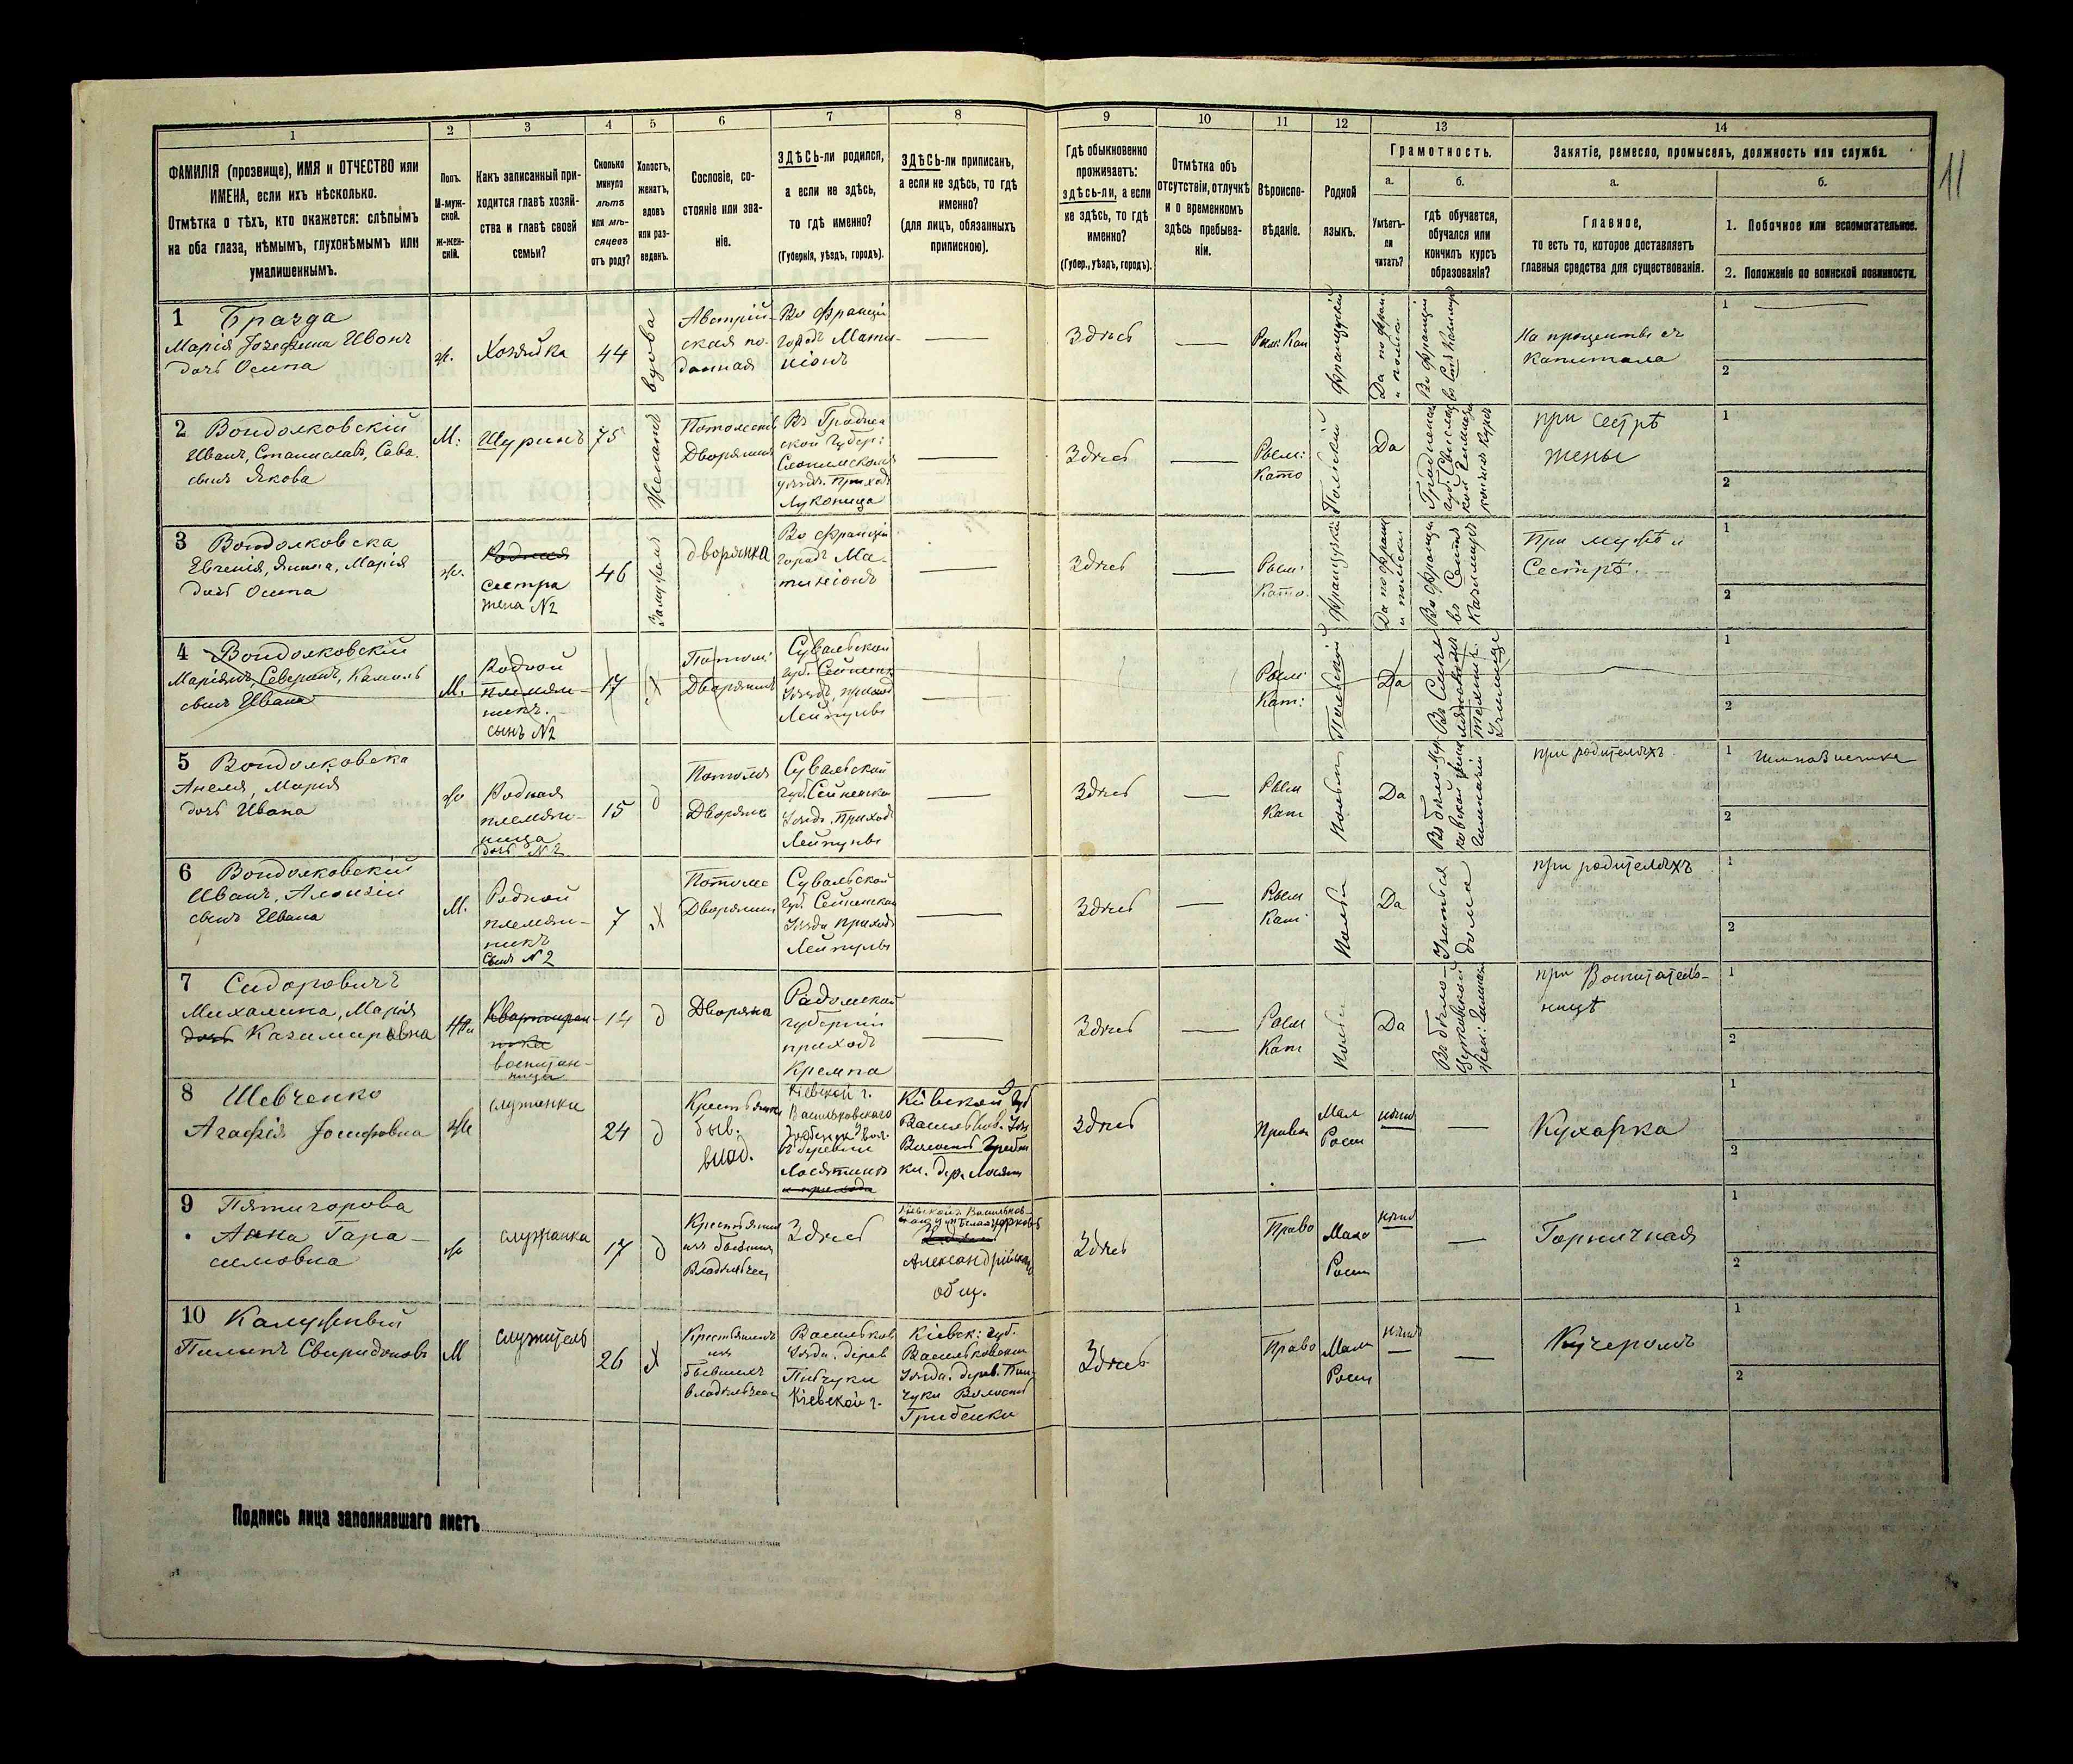 11
1 2 3 4 5 6 7 8 9 10 11 12 13 14
ФАМИЛІЯ (прозвище), ИМЯ и ОТЧЕСТВО или
ИМЕНА, если ихъ нѣсколько.
Отмѣтка о тѣхъ, кто окажется: слѣпымъ
на оба глаза, нѣмымъ, глухонѣмымъ или
умалишеннымъ.
Полъ.
М-муж-
ской.
Ж-жен-
скій.
Какъ записанный при-
ходится главѣ хозяй-
ства и главѣ своей
семьи?
Сколько
минуло
лѣтъ
или мѣ-
сяцевъ
отъ роду?
Холостъ,
женатъ,
вдовъ
или раз-
веденъ.
Сословіе, со-
стояніе или зва-
ніе.
ЗДѢСЬ-ли родился,
а если не здѣсь,
то гдѣ именно?
(Губернія, уѣздъ, городъ).
ЗДѢСЬ-ли приписанъ,
а если не здѣсь, то гдѣ
именно?
(для лицъ, обязанныхъ
припискою).
Гдѣ обыкновенно
проживаетъ:
здѣсь-ли, а если
не здѣсь, то гдѣ
именно?
(Губер., уѣздъ, городъ).
Отмѣтка объ
отсутствіи, отлучкѣ
и о временномъ
здѣсь пребыва-
ніи.
Вѣроиспо-
вѣданіе.
Родной
языкъ.
Грамотность.
а.
Умѣетъ-
ли
читать?
б.
гдѣ обучается,
обучался или
кончилъ курсъ
образованія?
Занятіе, ремесло, промыселъ, должность или служба.
а.
Главное,
то есть то, которое доставляетъ
главныя средства для существованія.
б.
1. Побочное или вспомогательное.
2. Положеніе по воинской повинности.
1 Брачда
Марія Іозефина Ивонъ
дочь Осипа
ж. Хозяйка 44 вдова
Австрій-
ская по-
данная
Во Франціи
городъ Мати-
ніонъ
Здѣсь
Рим: Кат
Французскій
Да по фран
и польски
На проценты съ
Капитала
1
2
2 Вондолковскій
Иванъ, Станиславъ, Сава.
сынъ Якова
М: Шуринъ 75 Женатъ
Потомств
Дворянинъ
Въ Гродне
ской Губер:
Слонимскомъ
уѣздѣ. Приходъ
Луконица
Здѣсь
Рым:
Като
Польскій
Да
при сестрѣ
жены
1
2
3 Вондолковска
Евгенія, Янина, Марія
дочь Осипа
ж.
Родная
сестра
жена N2
46 Замужняя
дворянка
Во Франціи
городъ Ма-
тиніонъ
Здѣсь
Рым:
Като.
Французскій
Да по франц
и польски
При мужѣ и
Сестрѣ.
1
2
4 Вондолковскій
Маріянъ, Северинъ, Камиль
сынъ Ивана
М.
Родной
племян-
никъ.
сынъ N2
17 Х
Потом:
Дворянинъ
Сувальской
губ. Сейненск
Уѣздъ, приходъ
Лейпуны
Рым:
Кат:
Польскій
Да
1
2
5 Вондолковска
Анеля, Марія
дочь Ивана
ж
Родная
племян-
ница
дочь N2
15 д
Потом
Дворянк
Сувальской
губ. Сейненска
Уѣздъ. Приходъ
Лейпуны
Здѣсь
Рым
Кат
Да
при родителяхъ
1 Гимназистка
2
6 Вондолковскій
Иванъ, Алоизій
сынъ Ивана
М.
Родной
племян-
никъ
Сынъ N2
7 Х
Потомс
Дворянин
Сувальской
губ. Сейненска
Уѣзда Приходъ
Лейпуны
Здѣсь
Рым
Кат
Да
Учиться
дома
при родителяхъ
1
2
7 Сидоровичъ
Михалина, Марія
дочь Казимировна
Квартиран-
тка
воспитан-
ница
14 д
Дворянка
Радомской
губерніи
приходъ
Кремпа
Здѣсь
Рым
Кат
Да
при Воспитатель-
ницѣ
1
2
8 Шевченко
Агафія Іосифовна
служанка
24 д
Крестьянка
быв.
влад.
Кіевской г.
Васильковскаго
Кіевской Губ
Здѣсь
Правос
Мал
Росси
нѣтъ
Кухарка
1
2
9 Пятигорова
Анна Гара-
симовна
ж служанка 17 д
Здѣсь
Александрійское
общ.
Здѣсь
Право
Мало
Росси
нѣтъ
Горничная
1
2
10 Калужный
Пилипъ Свиридоновъ
М служитель 26 Х
Крестьянинъ
изъ
бывшихъ
владѣльчес
Васильков
Уѣзда. дерев
Пивчуки
Кіевской г.
Кіевск: губ.
Васильковскаго
Уѣзда. дерев. Пин
чуки Волость
Гребенки
Здѣсь
Право
Мало
Росси
нѣтъ
Кучеромъ
1
2
Подпись лица заполнявшаго листъ